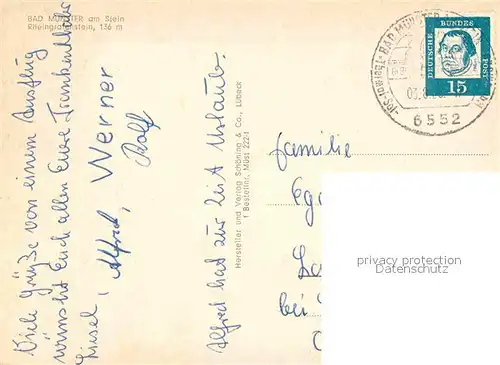 BAD MÜNSTER am Stein
Rheingrafenstein, 136 m
Viele Grüße von einem Ausflug
wünscht Euch allen Eure
Liesel, Alfred, Werner
Rolf
Alfred hat zur Zeit Urlaub.
Hersteller und Verlag Schöning & Co., Lübeck
Bestellnr. Müst 222
DEUTSCHE BUNDESPOST
15
BAD MÜNSTER
6552
Familie
bei
privacy protection
Datenschutz